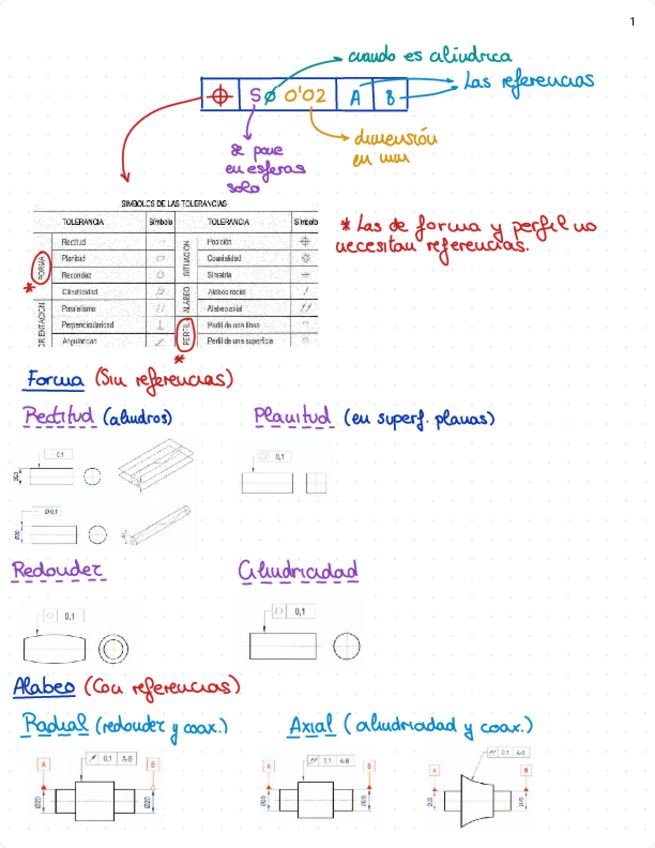 1
cuando es cilíndrica
Las referencias
SØ 0'02 A B
dimensión
en mm
Se pone
en esferas
solo
SIMBOLOS DE LAS TOLERANCIAS
TOLERANCIA Símbolo TOLERANCIA Símbolo
FORMA ORIENTACION SITUACION ALABEO PERFIL
Rectitud Posición
Planitud Coaxialidad
Redondez Simetría
Cilindricidad Alabeo radial
Paralelismo Alabeo axial
Perpendicularidad Perfil de una línea
Angularidad Perfil de una superficie
* Las de forma y perfil no
necesitan referencias.
*
*
Forma (Sin referencias)
Rectitud (cilindros) Planitud (en superf. planas)
0,1
Ø20
0,1
Ø0,1
Ø20
Redondez Cilindricidad
0,1
0,1
Alabeo (Con referencias)
Radial (redondez y coax.) Axial (cilindricidad y coax.)
A 0,1 A-B B
Ø20 Ø20
A 0,1 A-B B
Ø20 Ø20
A 0,1 A-B B
Ø20 Ø20